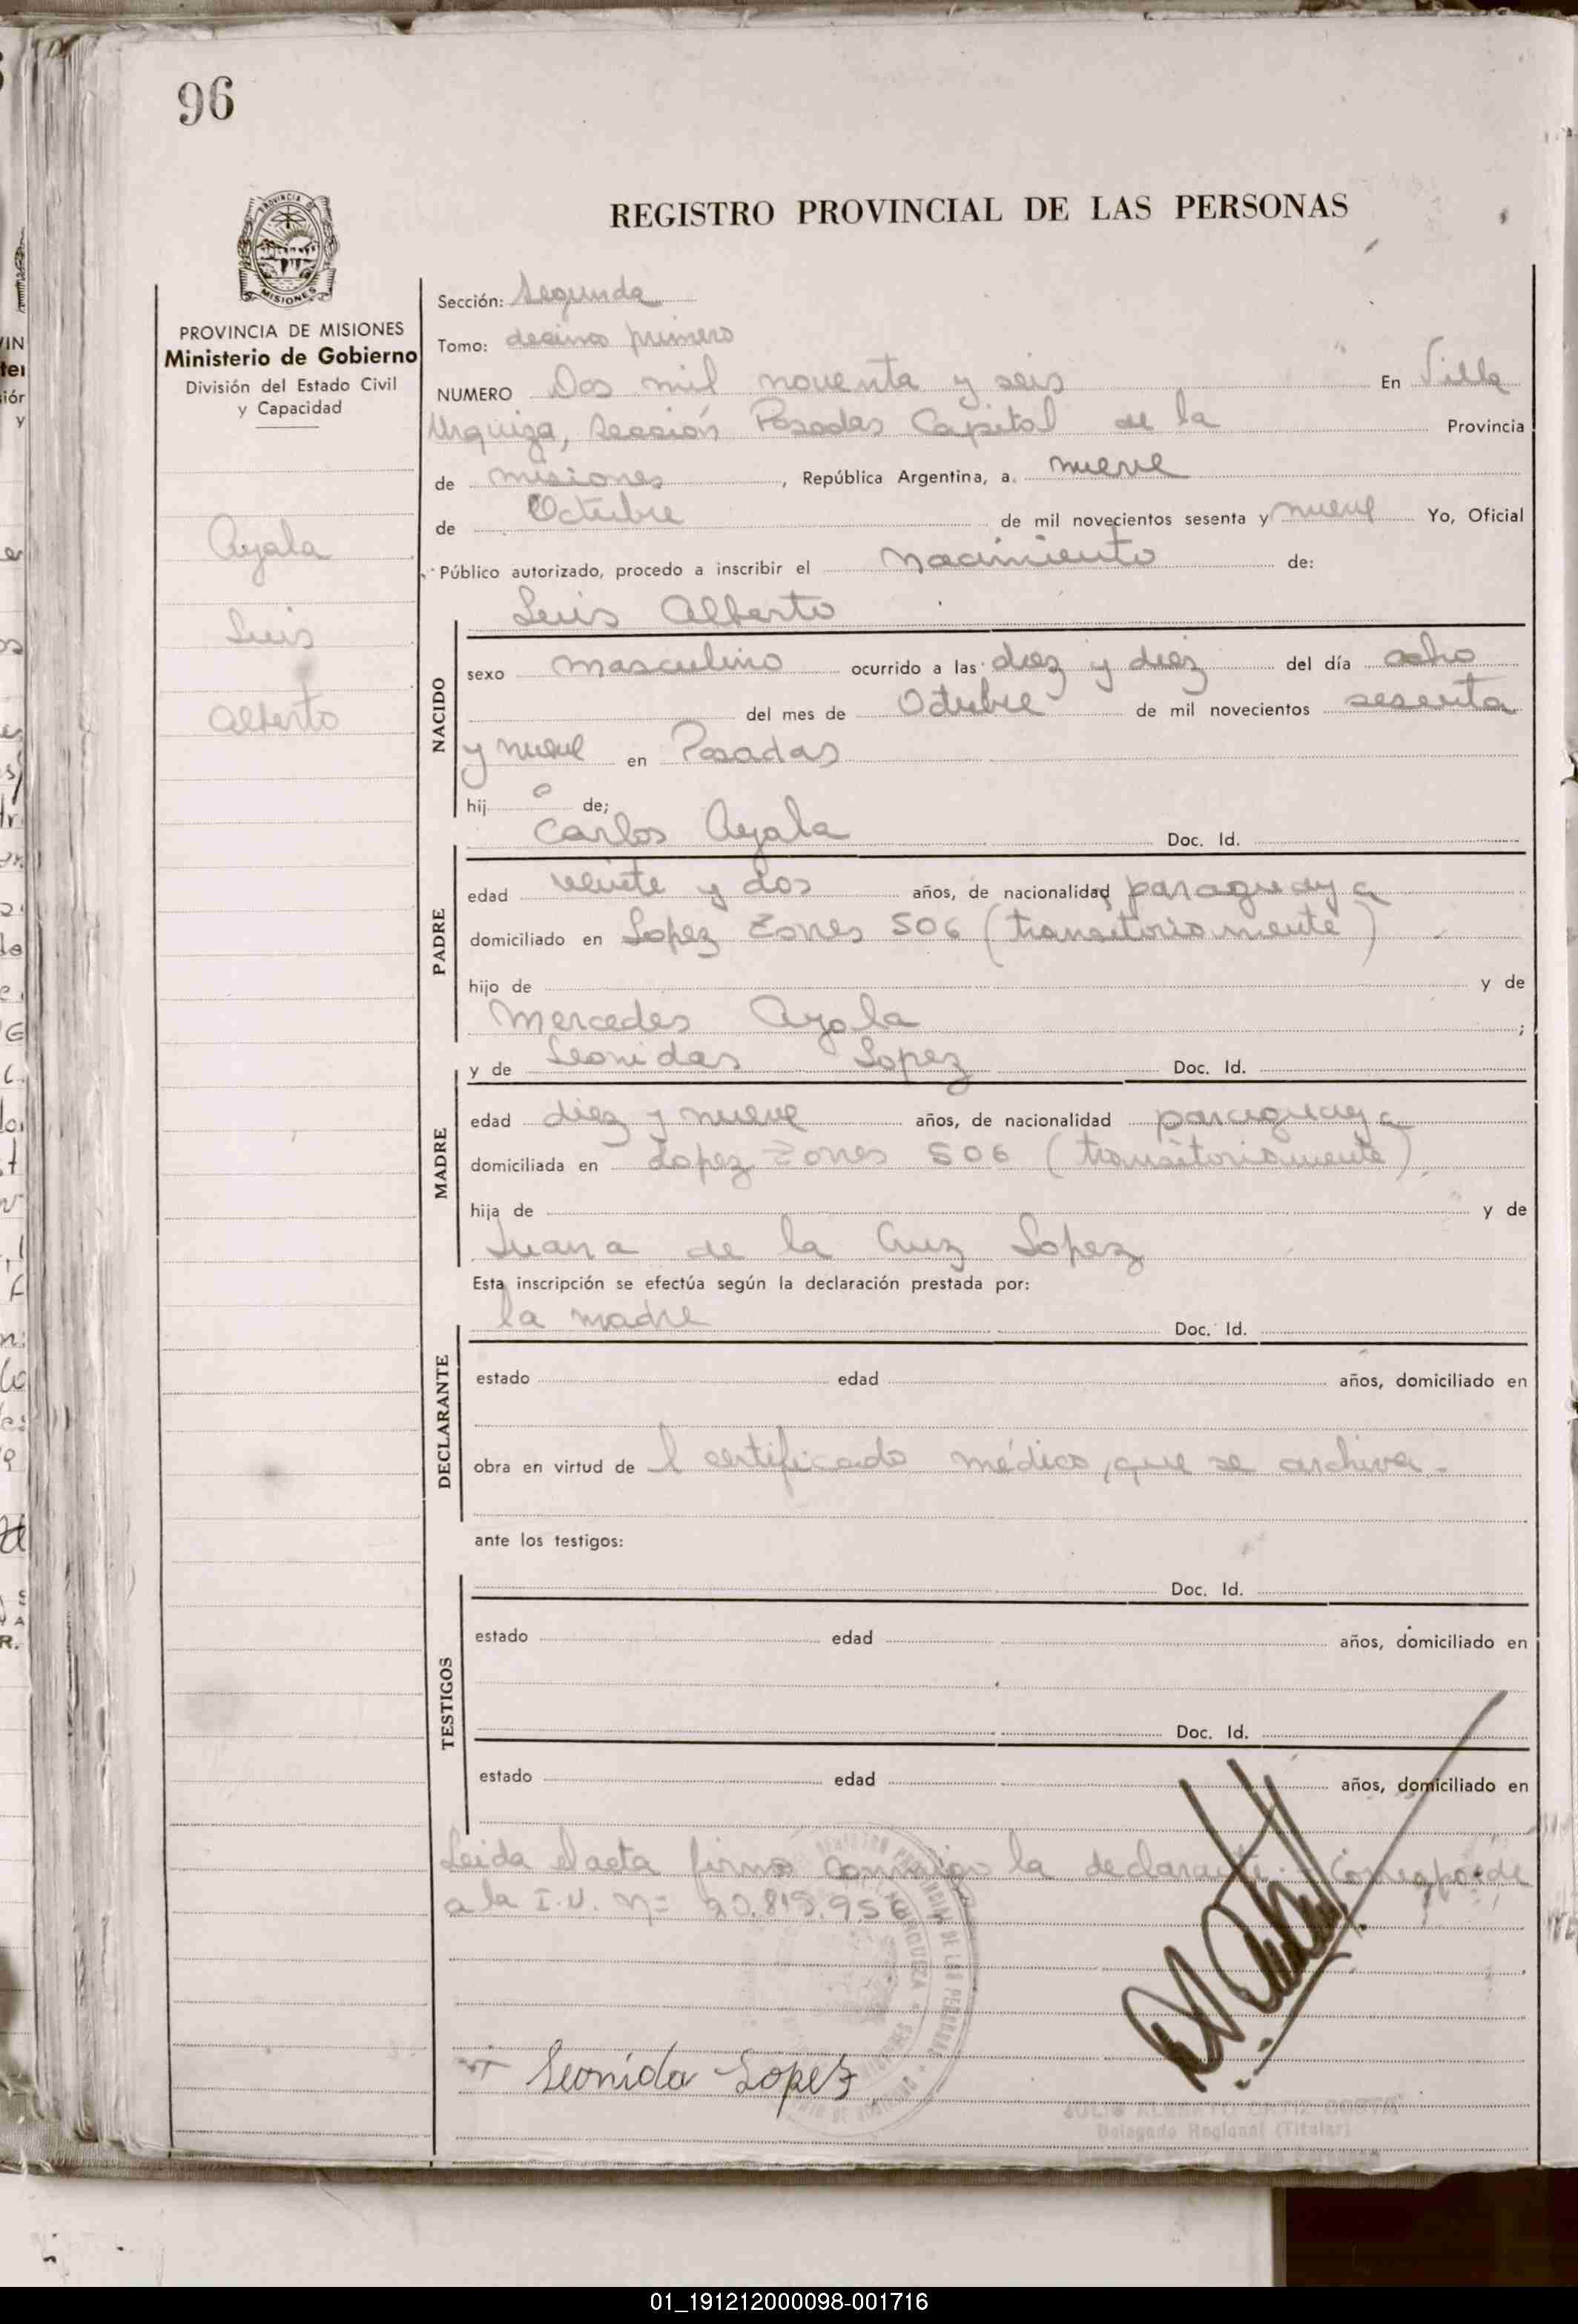 96
REGISTRO PROVINCIAL DE LAS PERSONAS
MISIONES
PROVINCIA DE MISIONES
Ministerio de Gobierno
División del Estado Civil
y Capacidad
Ayala
Luis
Alberto
Sección: Segunda
Tomo: decimo primero
NUMERO Dos mil noventa y seis En Villa
Urquiza, Sección Posadas Capital de la Provincia
de misiones, República Argentina, a nueve
de Octubre de mil novecientos sesenta y nueve Yo, Oficial
Público autorizado, procedo a inscribir el nacimiento de:
Luis Alberto
NACIDO
sexo masculino ocurrido a las diez y diez del día ocho
del mes de Octubre de mil novecientos sesenta
y nueve en Posadas
hij o de;
Carlos Ayala Doc. Id.
PADRE
edad veinte y dos años, de nacionalidad paraguaya
domiciliado en Lopez Zones 506 (transitoriamente)
hijo de y de
Mercedes Ayala ;
y de Leonidas Lopez Doc. Id.
MADRE
edad diez y nueve años, de nacionalidad paraguaya
domiciliada en Lopez Zones 506 (transitoriamente)
hija de y de
Juana de la Cruz Lopez
Esta inscripción se efectúa según la declaración prestada por:
la madre Doc. Id.
DECLARANTE
estado edad años, domiciliado en
obra en virtud de l certificado médico, que se archiva.
ante los testigos:
Doc. Id.
TESTIGOS
estado edad años, domiciliado en
Doc. Id.
estado edad años, domiciliado en
Leida el acta firma conmigo la declarante. Corresponde
a la I.U. n= 20.819.956
Leonida Lopez
JULIO ALBERTO COSTA
Delegado Regional (Titular)
01_191212000098-001716